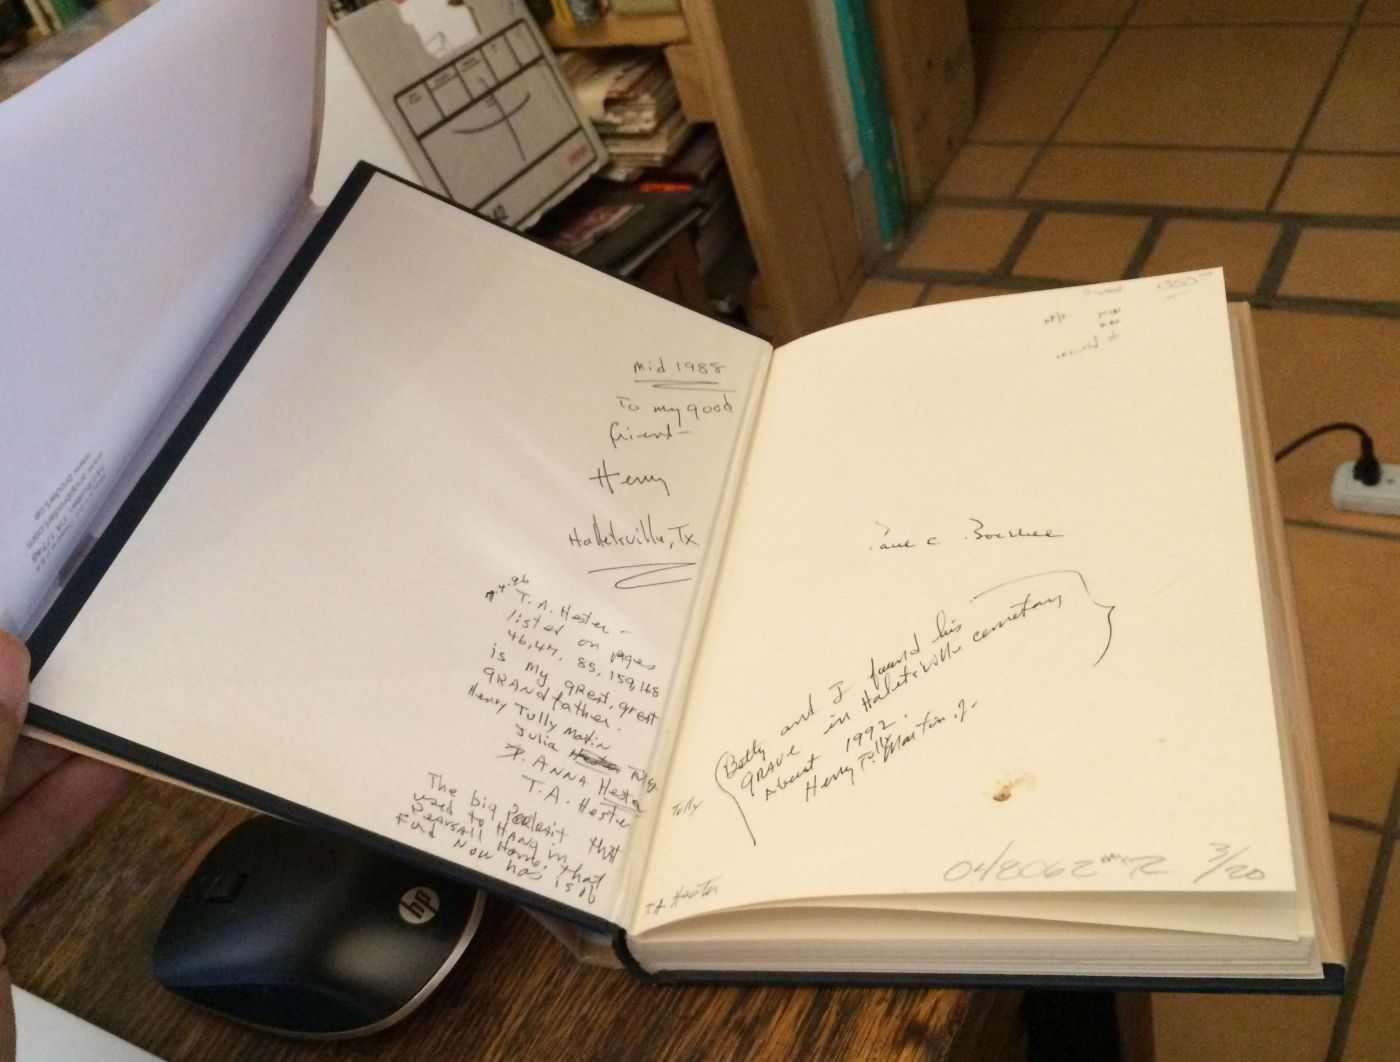 mid 1988
To my good
friend-
Henry
Halletsville, Tx
T. A. Hester -
listed on pages
46, 47. 85, 159, 168
is my great, great
GRANdfather.
Henry Tully Matin
Julia Tully
ANNA Hester
T. A. Hester
The big Portrait that
used to HANG in
Pearsall Home, that
Ford Now has is of
T.A. Hester
Tully
(Betty and I found his
GRAVE in Halletsville cemetary
About 1992.
Henry Tully Martin Jr-
3/20
hp